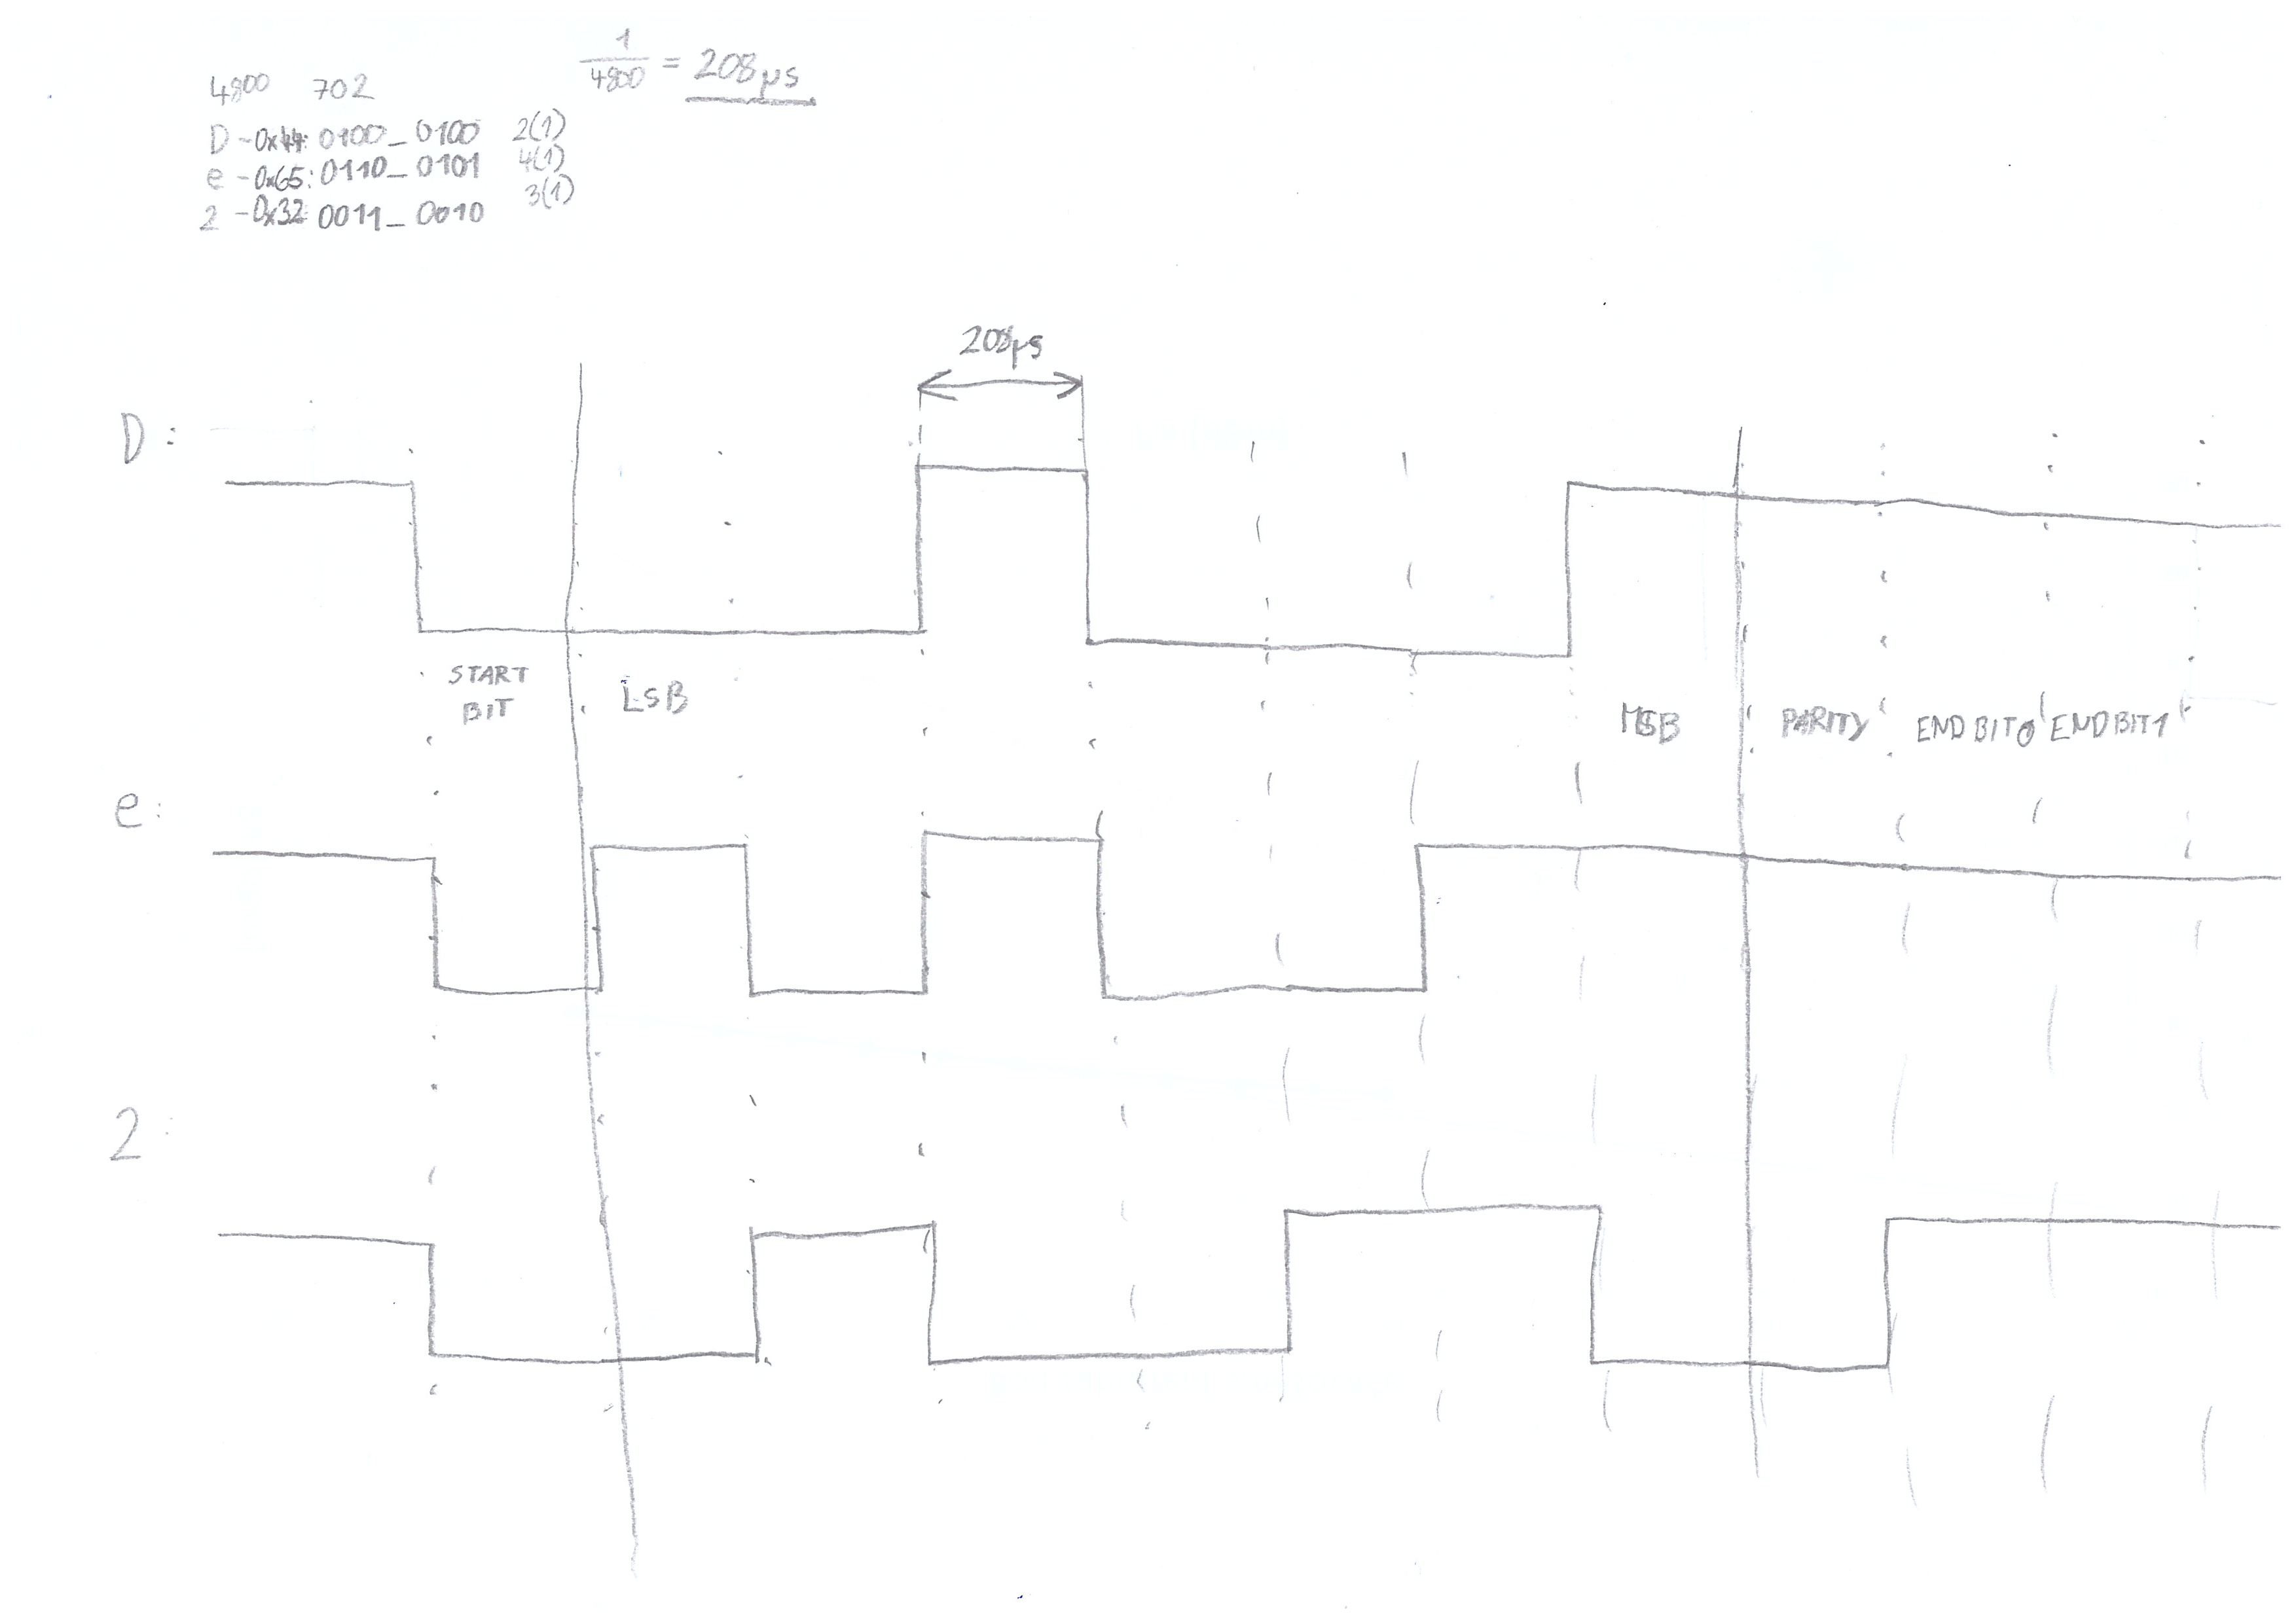 1
4800 = 208µs
4800 702
D - 0x44: 0100_0100 2(1)
e - 0x65: 0110_0101 4(1)
2 - 0x32 0011_0010 3(1)
208µs
D:
START
BIT
LSB
MSB
PARITY
END BIT0
END BIT1
e:
2: